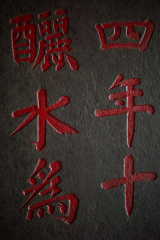 四年十
釃水為